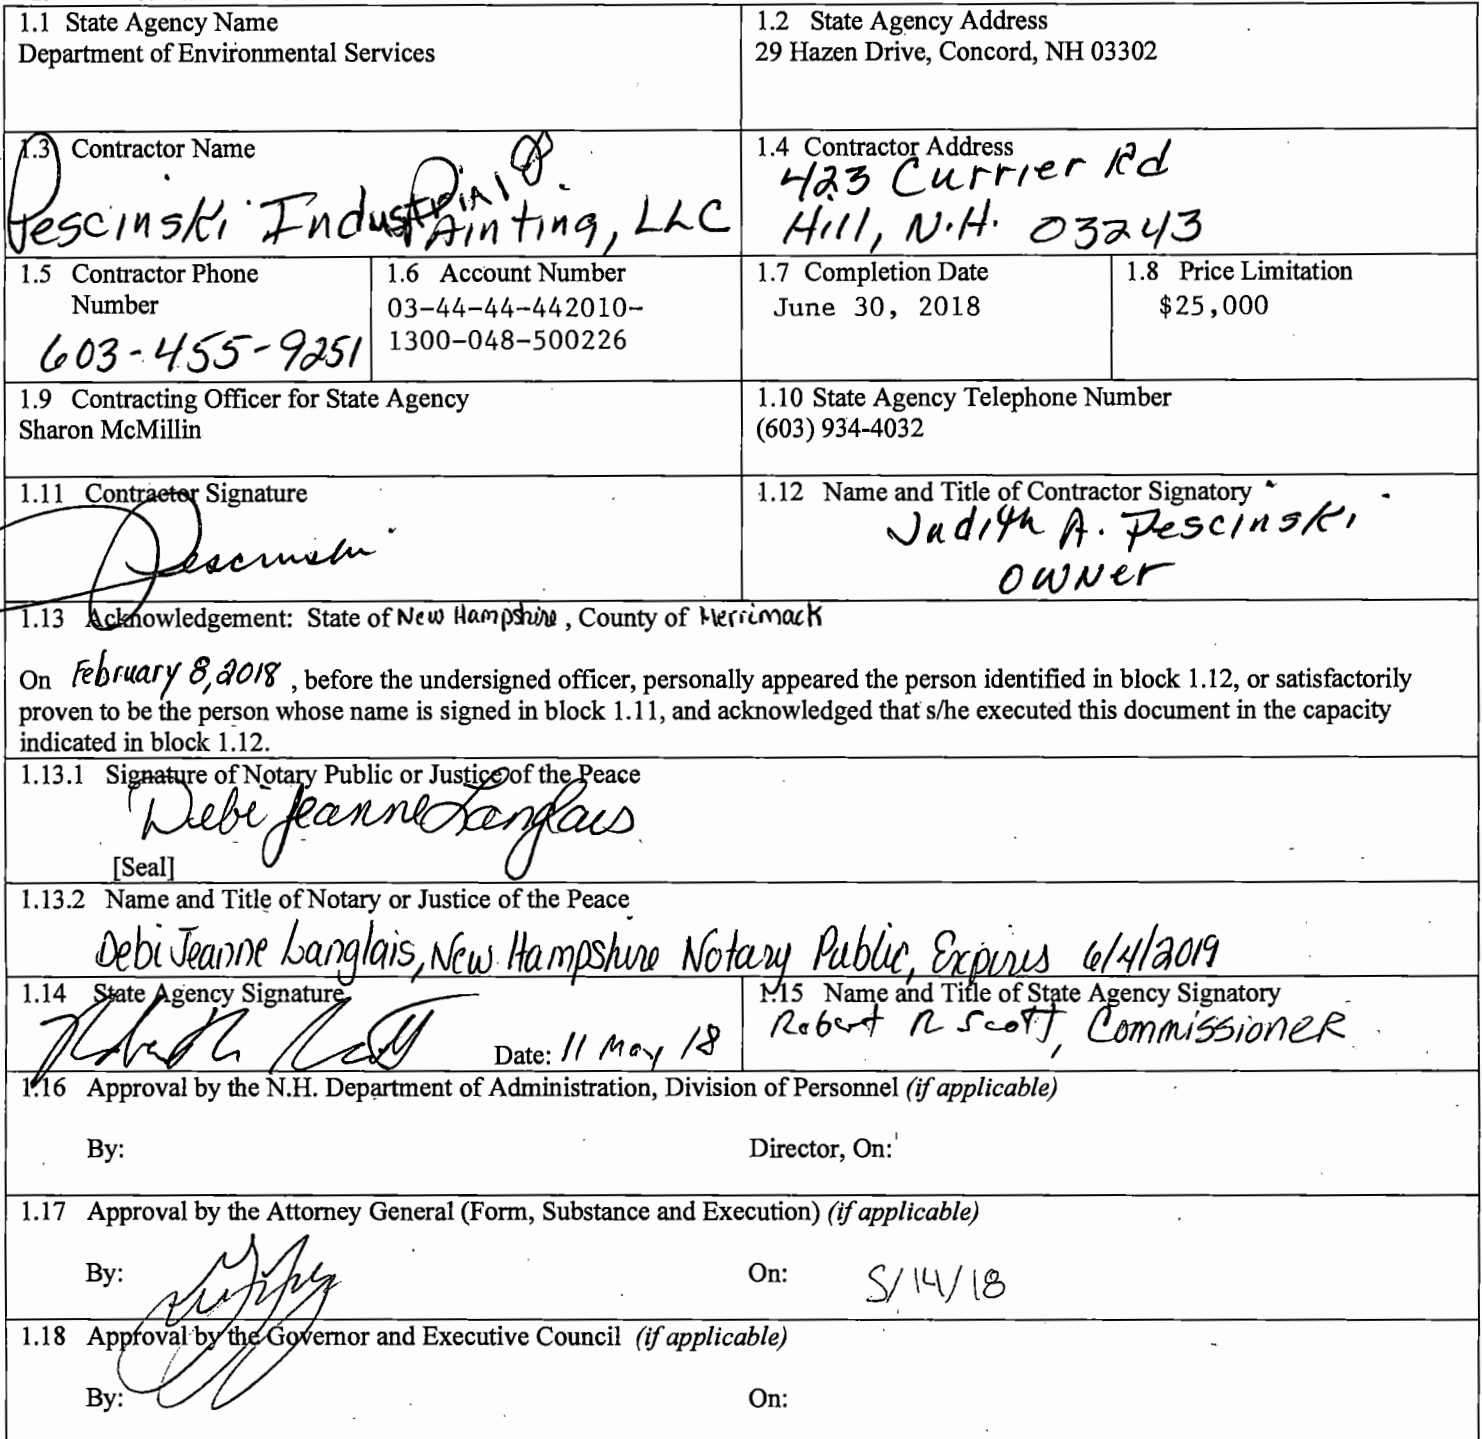 1.1 State Agency Name
Department of Environmental Services
1.2 State Agency Address
29 Hazen Drive, Concord, NH 03302
1.3 Contractor Name
Pescinski Industrial
Painting, LLC
1.4 Contractor Address
423 Currier Rd
Hill, N.H. 03243
1.5 Contractor Phone
Number
603-455-9251
1.6 Account Number
03-44-44-442010-
1300-048-500226
1.7 Completion Date
June 30, 2018
1.8 Price Limitation
$25,000
1.9 Contracting Officer for State Agency
Sharon McMillin
1.10 State Agency Telephone Number
(603) 934-4032
1.11 Contractor Signature
Pescinski
1.12 Name and Title of Contractor Signatory
Judith A. Pescinski
OWNer
1.13 Acknowledgement: State of New Hampshire, County of Merrimack
On February 8, 2018, before the undersigned officer, personally appeared the person identified in block 1.12, or satisfactorily
proven to be the person whose name is signed in block 1.11, and acknowledged that s/he executed this document in the capacity
indicated in block 1.12.
1.13.1 Signature of Notary Public or Justice of the Peace
Debi Jeanne Langlais
[Seal]
1.13.2 Name and Title of Notary or Justice of the Peace
Debi Jeanne Langlais, New Hampshire Notary Public, Expires 6/4/2019
1.14 State Agency Signature
Robert R Scott Date: 11 May 18
1.15 Name and Title of State Agency Signatory
Robert R Scott, Commissioner
1.16 Approval by the N.H. Department of Administration, Division of Personnel (if applicable)
By: Director, On:
1.17 Approval by the Attorney General (Form, Substance and Execution) (if applicable)
By: On: 5/14/18
1.18 Approval by the Governor and Executive Council (if applicable)
By: On: